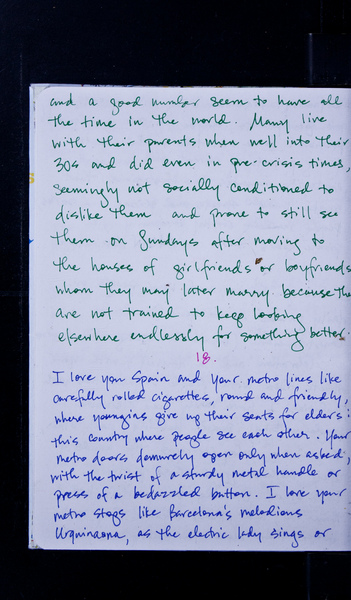 and a good number seem to have all
the time in the world. Many live
with their parents when well into their
30s and did even in pre-crisis times,
seemingly not socially conditioned to
dislike them and prone to still see
them on Sundays after moving to
the houses of girlfriends or boyfriends
whom they may later marry because they
are not trained to keep looking
elsewhere endlessly for something better.
18.
I love you Spain and your metro lines like
carefully rolled cigarettes, round and friendly,
where youngins give up their seats for elders:
this country where people see each other. Your
metro doors demurely open only when asked,
with the twist of a sturdy metal handle or
press of a bedazzled button. I love your
metro stops like Barcelona's melodious
Urquinaona, as the electric lady sings or